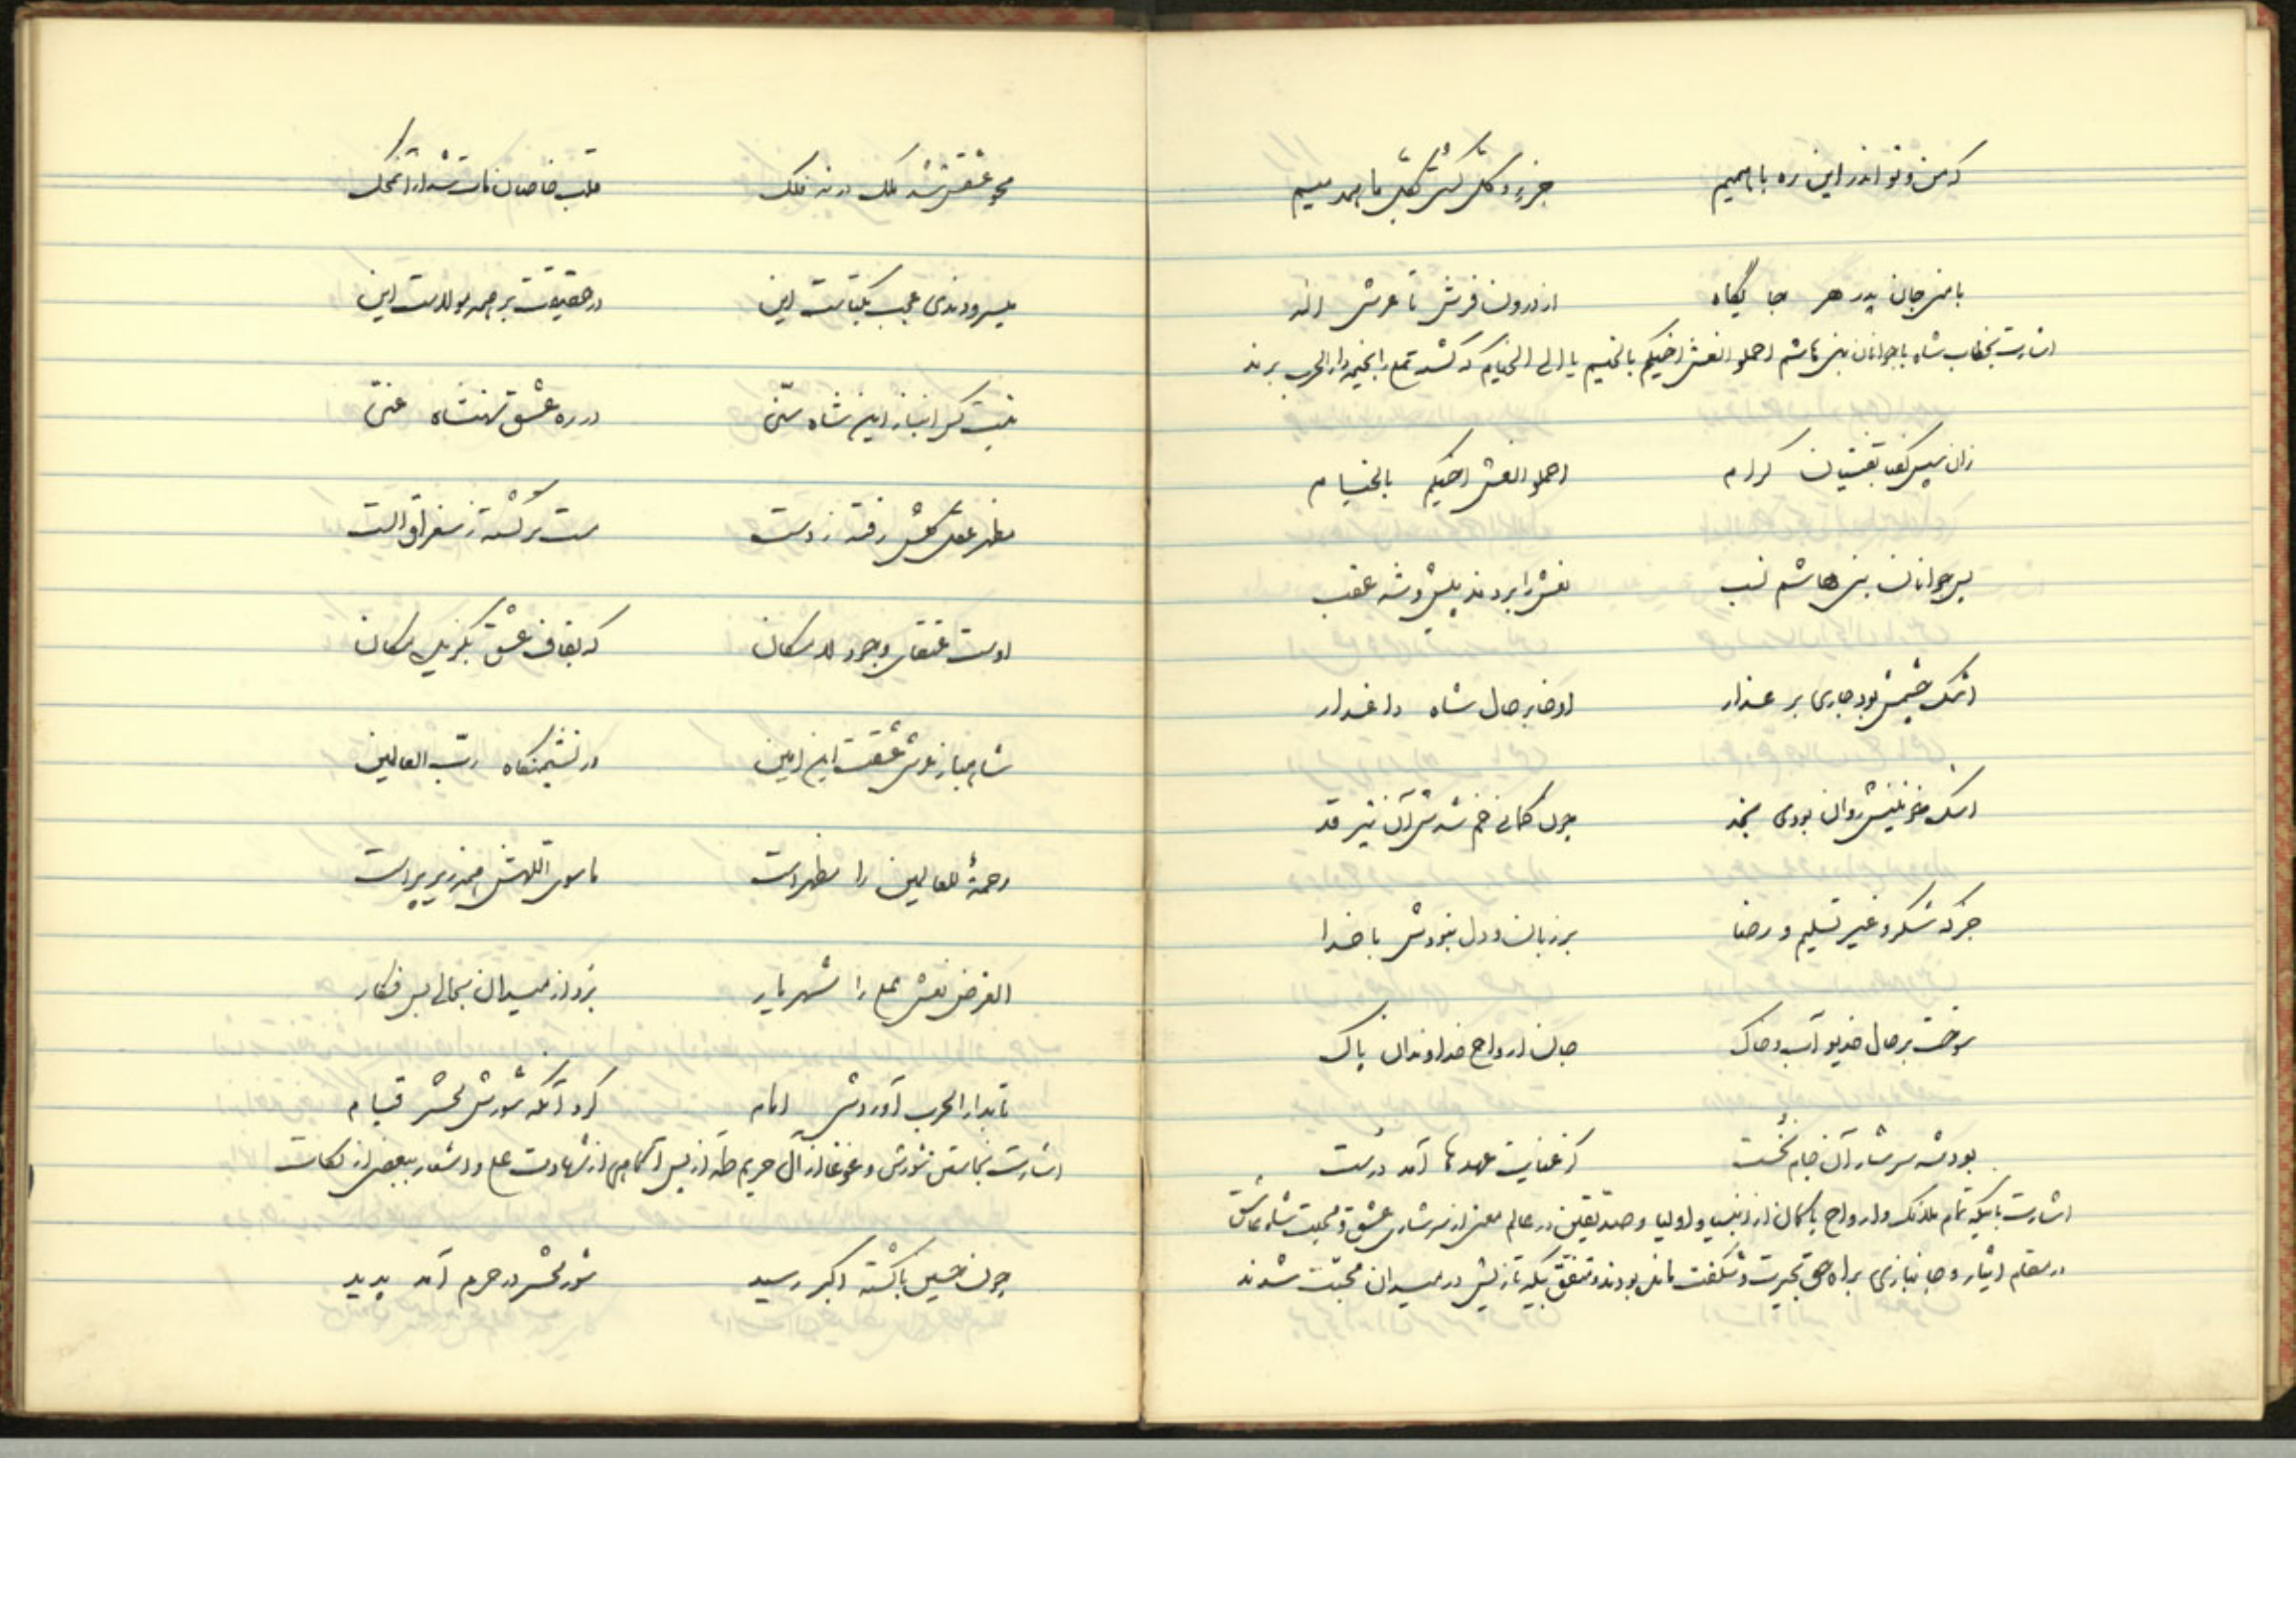 که من و تو اندر این ره با همیم جزء و کل کی شکّی ما همدمیم
با من جان پدر هر جا بگاه از درون فرش تا عرش اله
اشارت بخطاب شاه با جوانان بنی هاشم احملو النعش اخیکم بالخیم یا الی الخیام که کشته علی را بخیمه دار الحرب برند
زان سپس گفتا بفتیان کرام احملو النعش اخیکم بالخیام
پس جوانان بنی هاشم نسب نعش را بردند پیش و شه عقب
اشک چشمش بود جاری بر عذار اوفتا بر حال شاه داغدار
اشک خونینش روان بودی بخد چون کمانی خم شدش آن تیر قد
جز که شکر و غیر تسلیم و رضا بر زبان و دل نبودش با خدا
سوخت بر حال خدیو آب و خاک جان ارواح خداوندان پاک
بود شه سرشار آن جام نخست کز عنایت عهدها آمد درست
اشارت باینکه تمام ملائک و ارواح پاکان از انبیا و اولیا و صدیقین در عالم معنی از سرشاری عشق و محبت شاه عاشق
در مقام ایثار و جانبازی براه حق بحیرت و شگفت مانده بودند و متفق یکه تازیش در میدان محبّت شدند
محو عشقش شد ملک در نه فلک قلب خاصان مات شد از انمحک
میسرودندی عجب یکتاست این در حقیقت بر همه مولاست این
نیست کس انباز این شاه سنی در ره عشق شهنشاه غنی
مظهر عقل کلش رفته ز دست مست برگشته ز سغراق الست
اوست عنقای وجود لامکان که بقاف عشق بگزیدی مکان
شاهباز عرش عشقست این امین در نشیمنگاه ربّ العالمین
رحمةً للعالمین را مظهر است ماسوی اللهش همه زیر پر است
الغرض نعش علی را شهریار برد از میدان بحالی بس فکار
تا بدار الحرب آوردش امام کرد آنکه شورش محشر قیام
اشارت بخاستن شورش و غوغا از آل حریم طه از پس آگاهی از شهادت علی و اشعار ببعضی از نکات
چون حسین با کشته اکبر رسید شور محشر در حرم آمد پدید